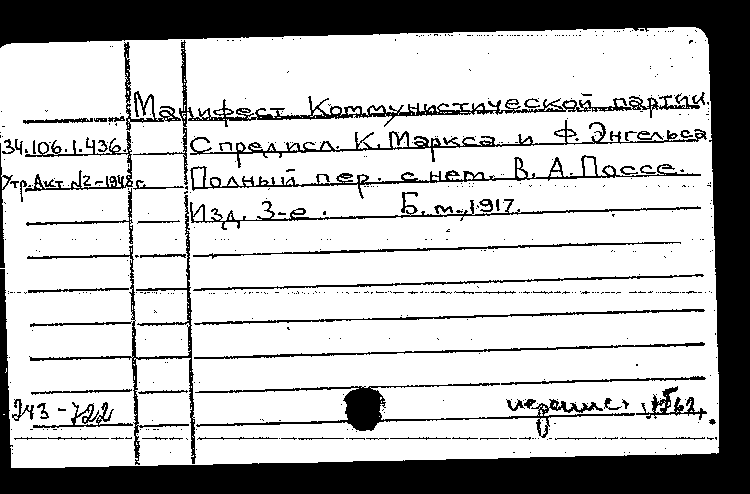 Манифест Коммунистической партии.
34.106.1.436. С предисл. К. Маркса и Ф. Энгельса
Утр. Акт №2-1948г. Полный пер. с нем. В. А. Поссе.
Изд. 3-е. Б. м., 1917.
243-722